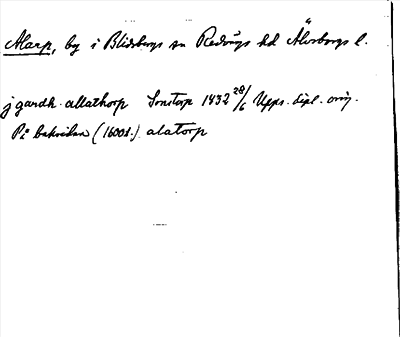 Alarp, by i Blidsbergs sn Redvägs hd Älvsborgs l.
j gardh allathorp Sonstorp 1432 28/6 Upps. dipl. orig.
På baksidan (1600t.) alatorp